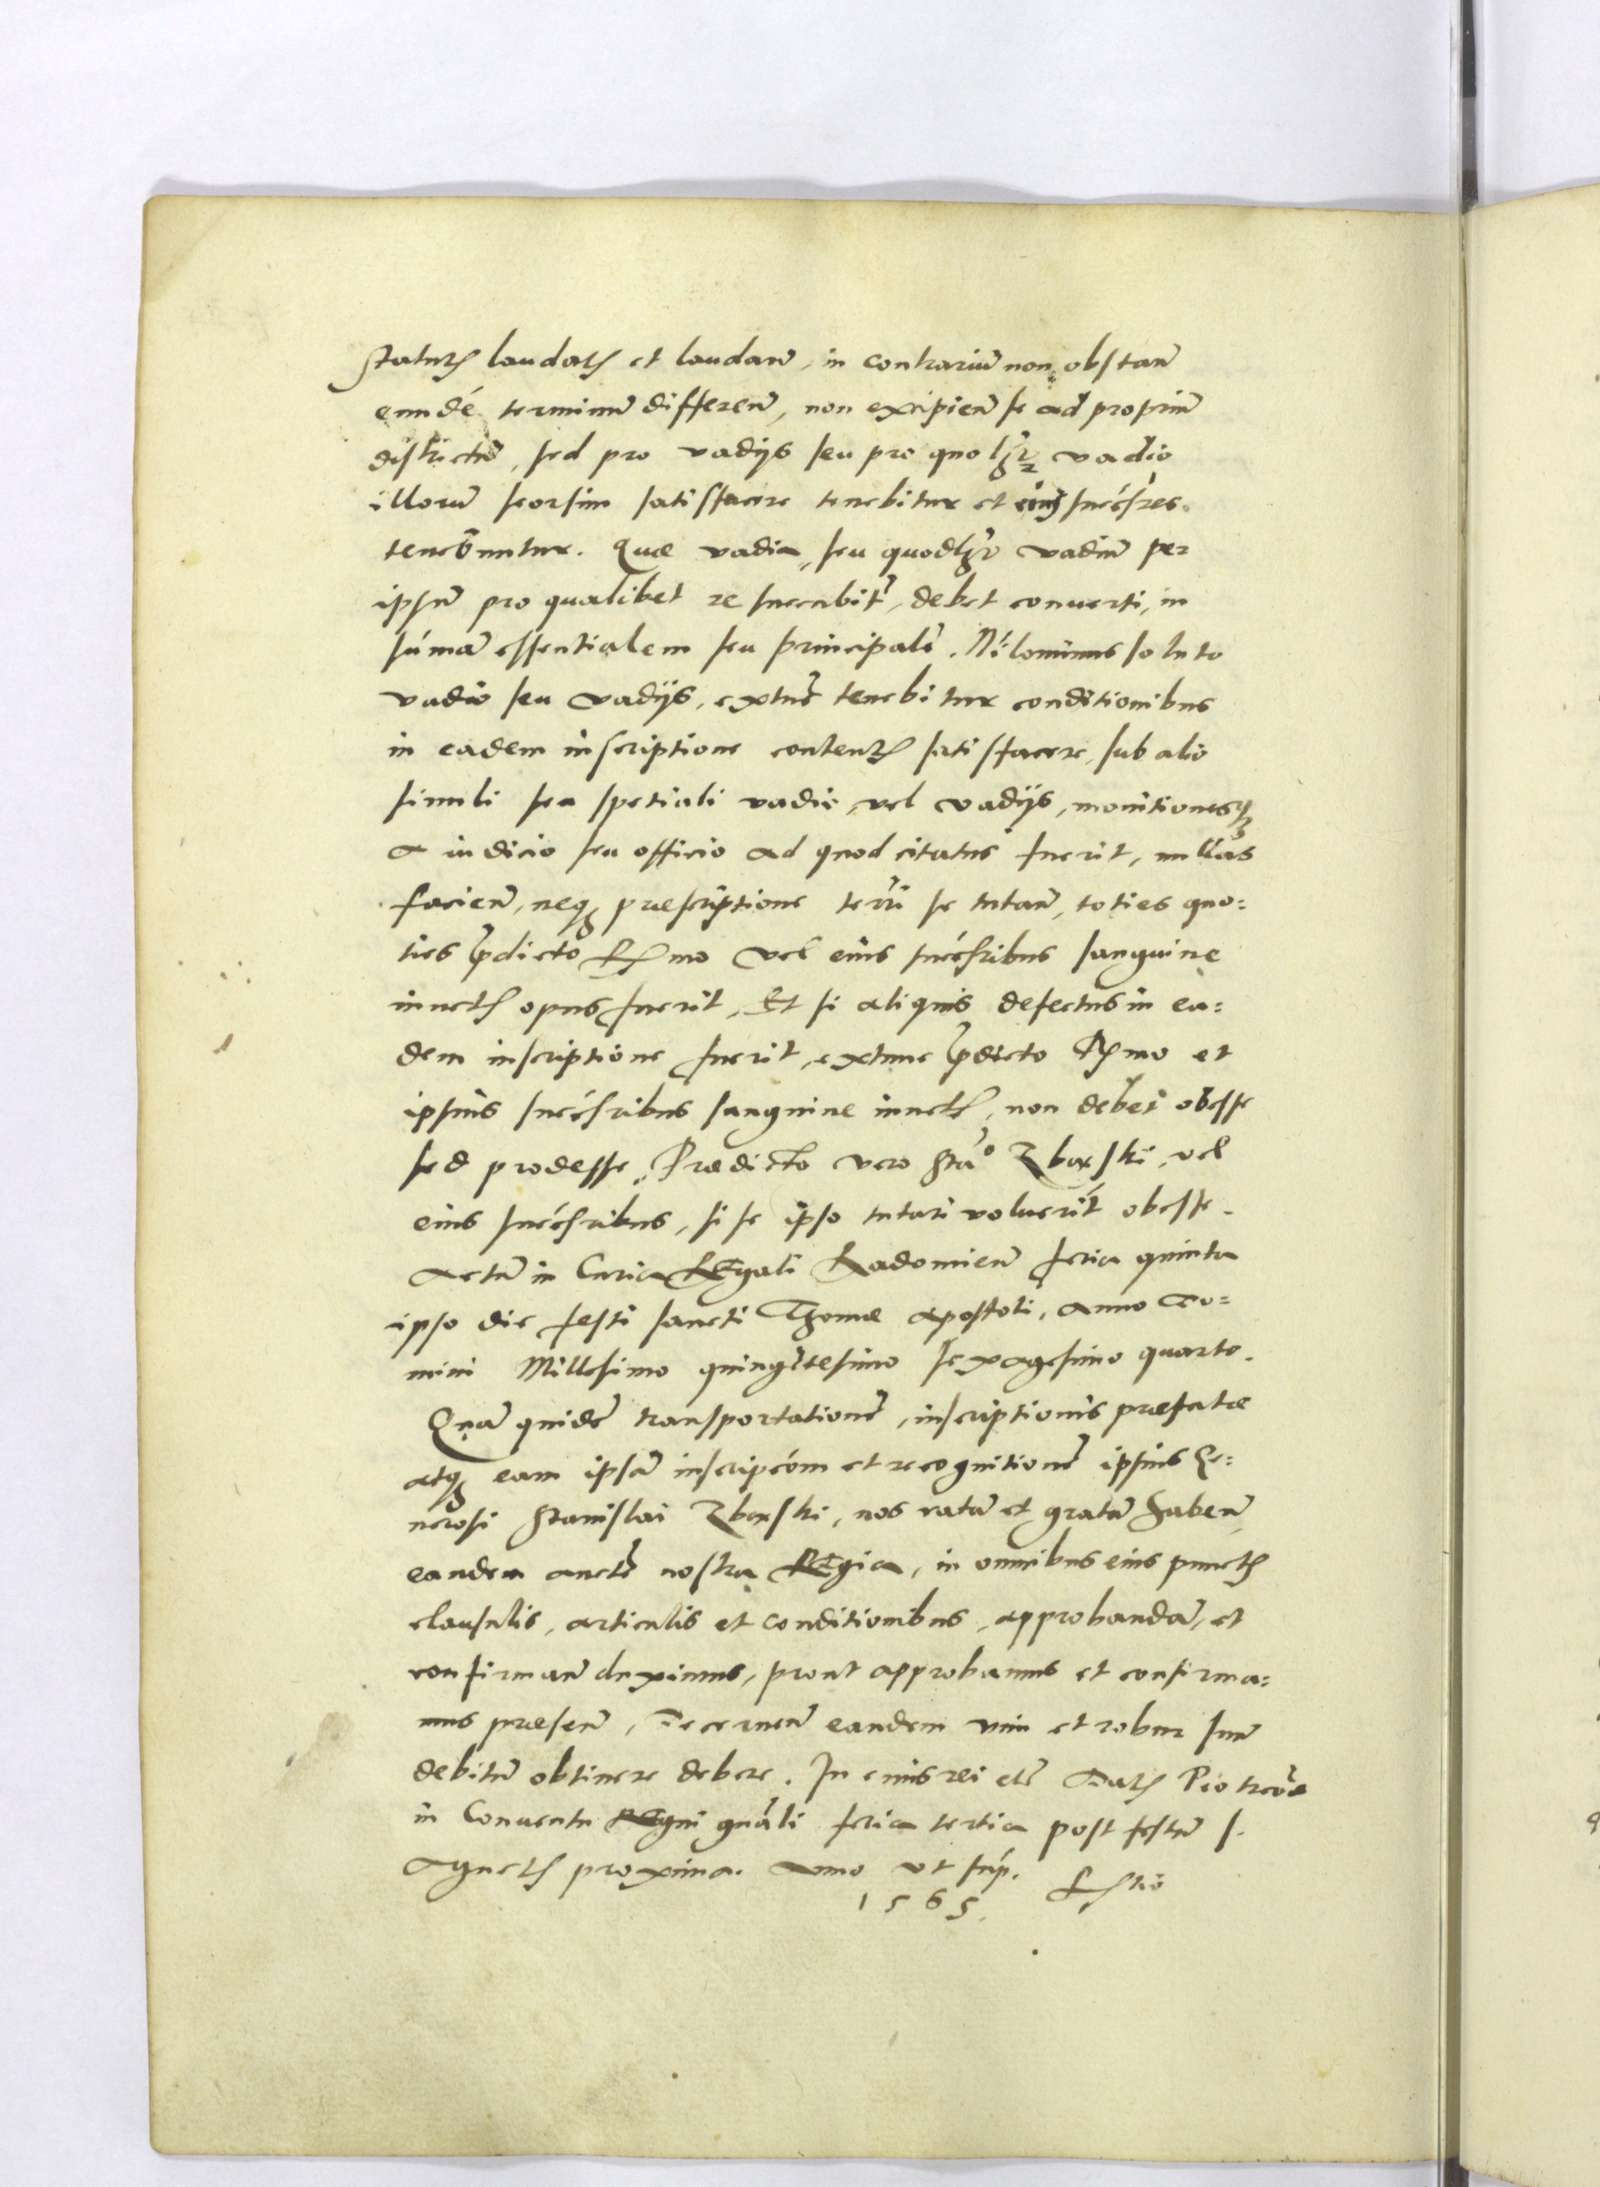 statutis laudatis et laudan̄, in contrariū non obstan̄
eundē terminū differen̄, non excipien̄ se ad propriū
districtū, sed pro vadijs seu pro quolꝫ vadio
illorū seorsim satisfacere tenebitur et eius succēsres
tenebuntur. Quæ vadia, seu quodlꝫ vadiū per
ipsū pro qualibet re succubit̄, debet conuerti, in
sūmā essentialem seu principalē. Nilominus soluto
vadio seu vadijs, extūc tenebitur conditionibus
in eadem inscriptione contentis satisfacere, sub alio
simili seu spetiali vadio, vel vadijs, monitionesqꝫ
a iudicio seu officio ad quod citatus fuerit, nullas
facien̄, neqꝫ præscriptione terrī se tutan̄, toties quo:
ties p̄dicto Rmo vel eius succēsribus sanguine
iunctis opus fuerit, Et si aliquis defectus in ea:
dem inscriptione fuerit, extunc p̄dicto Rmo et
ipsius succēsribus sanguine iunctis, non debet obesse
sed prodesse, Prædicto vero Sta° Zborski, vel
eius succēsribus, si se ipso tutari voluerit obesse.
Actū in Curia Regali Radomien̄ feria quinta
ipso die festi sancti Thomæ apostoli, anno Do:
mini Millesimo quingētesimo sexagesimo quarto.
Quā quidē transportationē, inscriptionis præfatæ
atqꝫ eam ipsā inscripcōm et recognitionē ipsius Ge:
nerosi Stanislai Zborski, nos ratā et gratā haben̄,
eandem auctē nostra Regia, in omnibus eius punctis
clausulis, articulis et conditionibus, approbandā, et
confirman̄ duximus, prout approbamus et confirma:
mus præsen̄, Decernen̄ eandem vim et robur suū
debitū obtinere debere. In cuius rei etc̄ Datis Piotrcoū
in Conuentu Regni gnāli feria tertia post festū S.
Agnetis proxima. Anno vt sup.
1565.